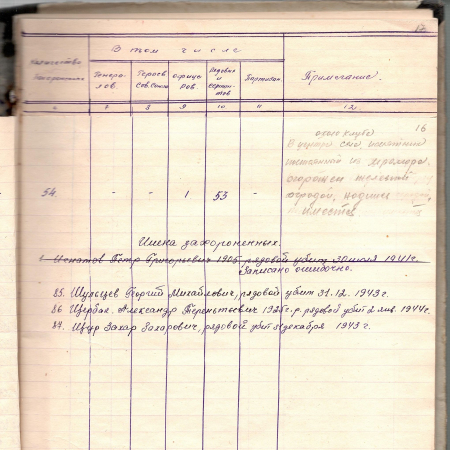 17
В том числе
Количество захороненных
Генера-лов.
Героев Сов.Союза
Офице-ров.
Рядовых и сержан-тов
Партизан.
Примечание.
6 7 8 9 10 11 12
около клуба 16
В центре села памятник
из мрамора
огорожен
оградой, надпись
имеется
54. - - 1 53 -
Имена захороненных.
Игнатов Петр Григорьевич 1905 рядовой убит 30 июля 1941г.
Записано ошибочно.
85. Шульцев Георгий Михайлович, рядовой убит 31.12.1943г.
86 Щербак Александр Терентьевич 1925 г.р рядовой убит 2 янв. 1944г.
87. Захар Захарович, рядовой убит декабря 1943 г.